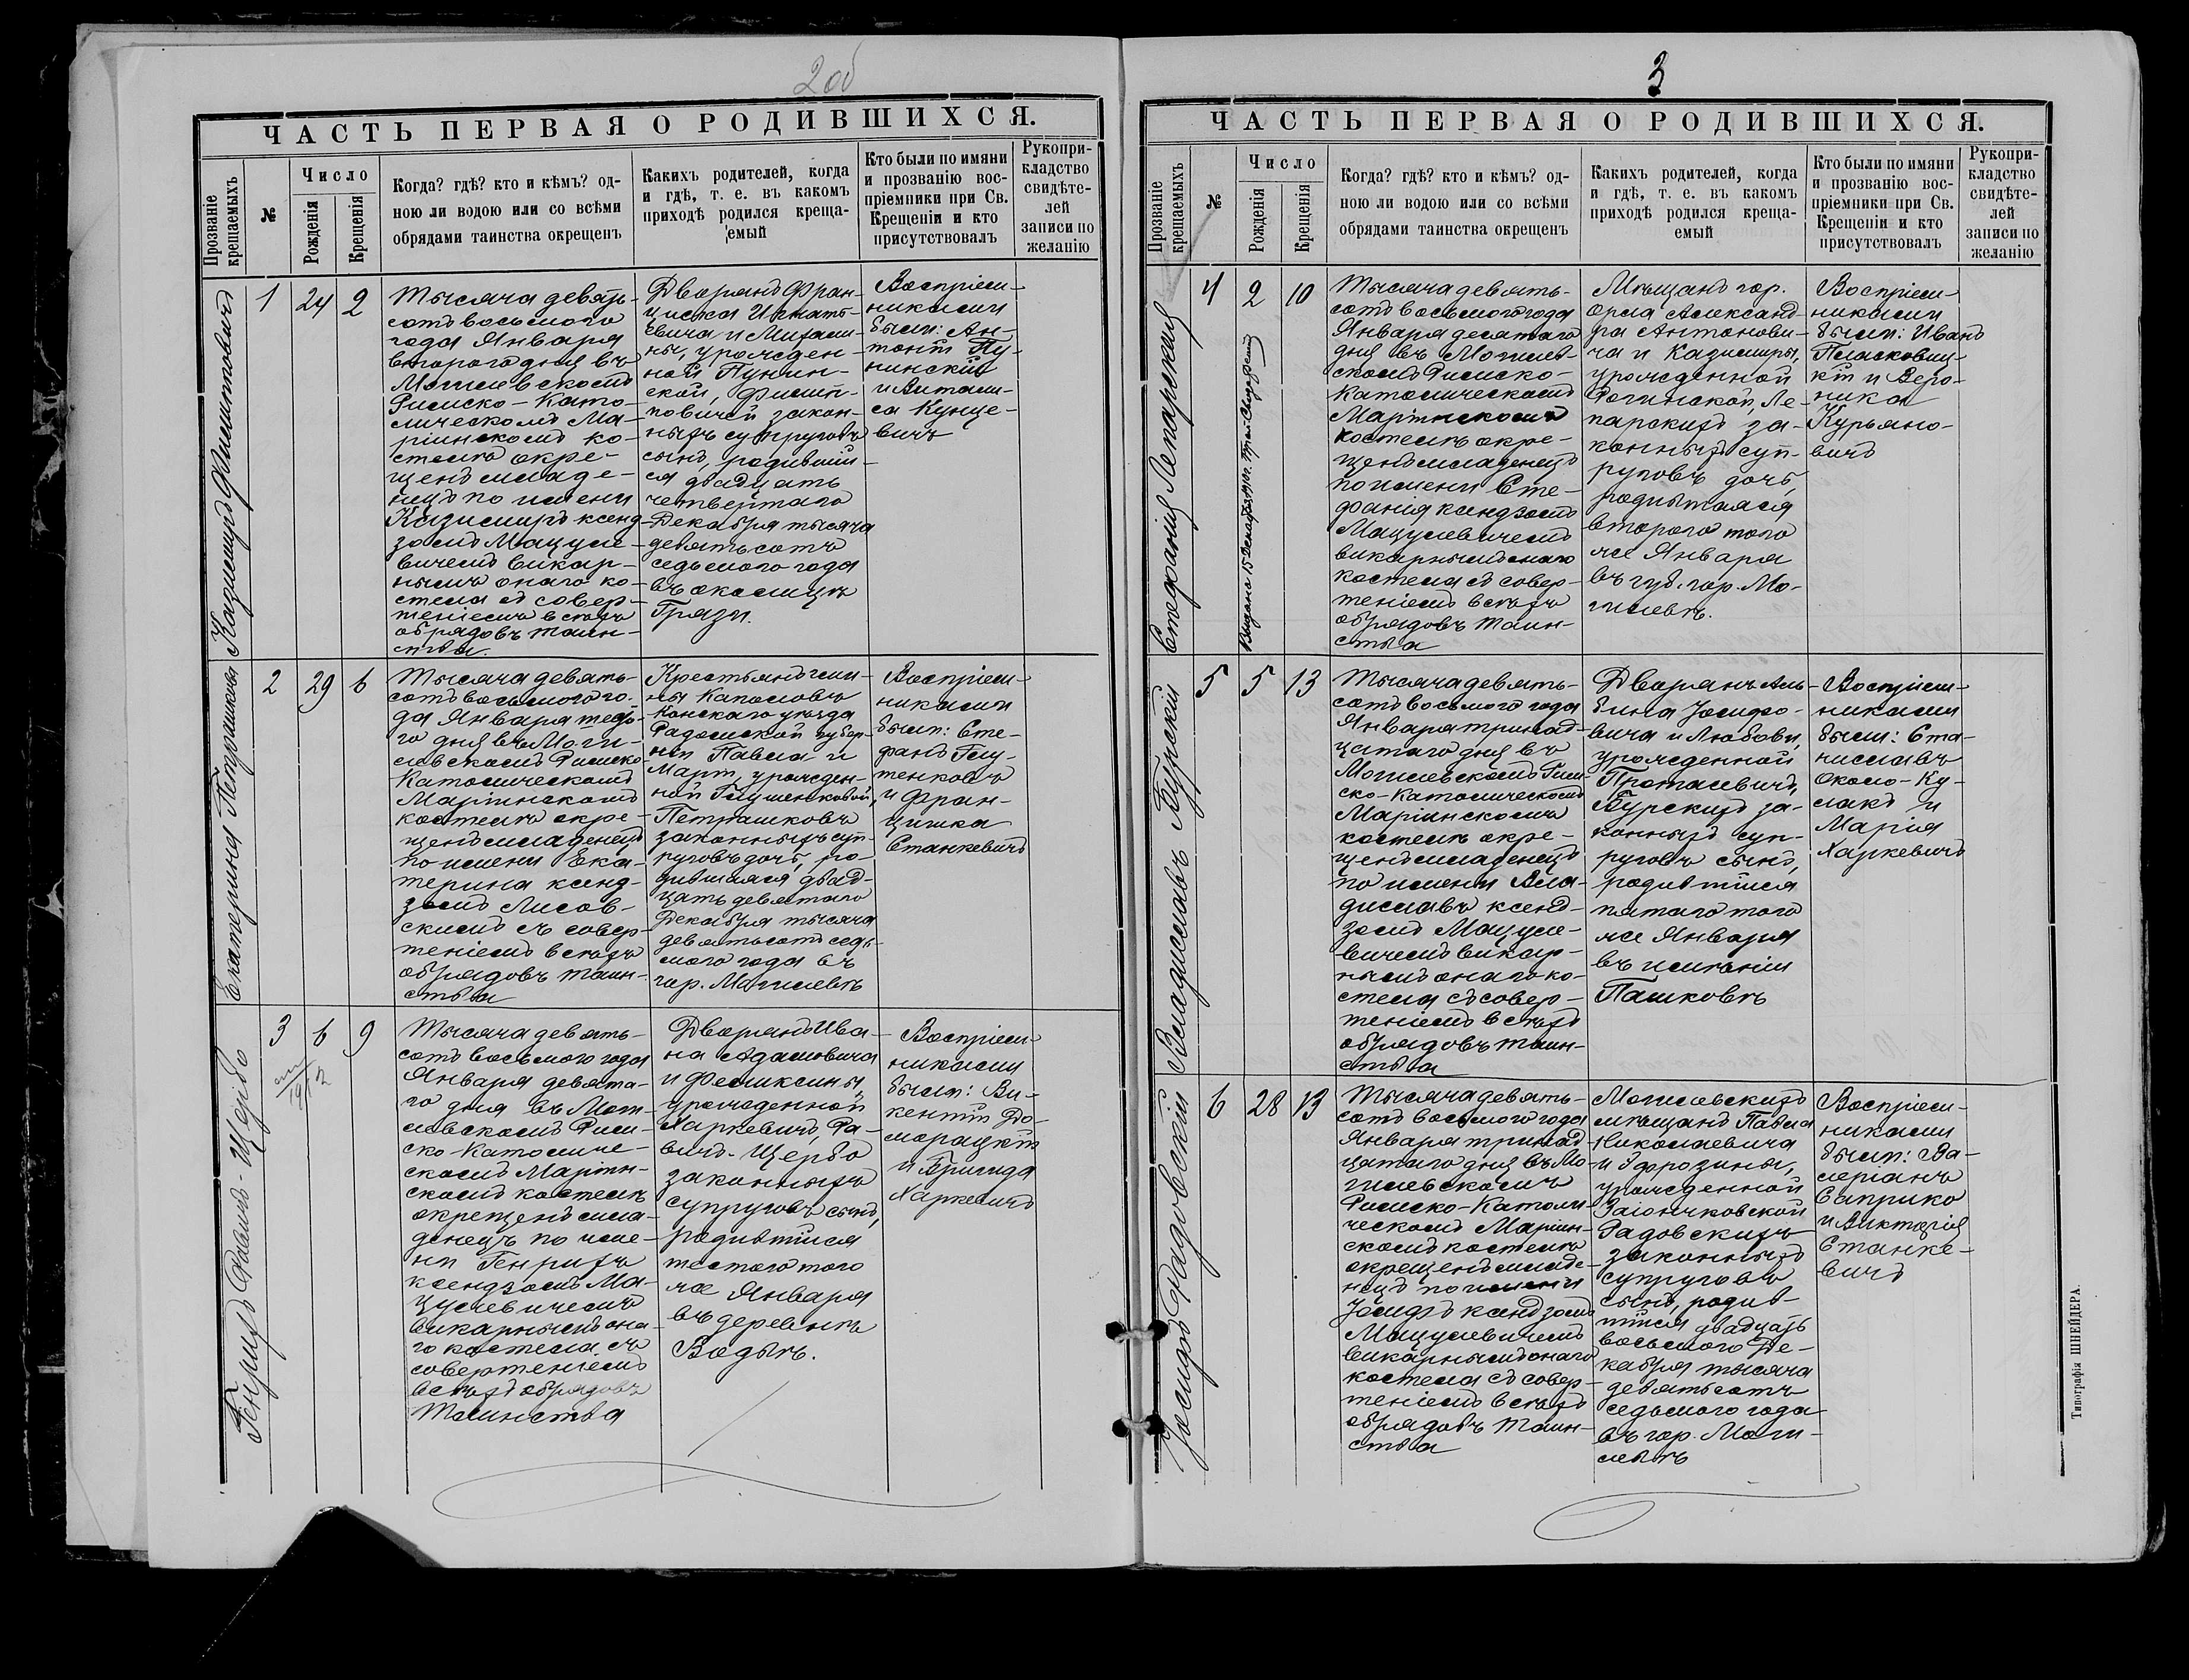 2 об
ЧАСТЬ ПЕРВАЯ О РОДИВШИХСЯ.
Прозваніе крещаемыхъ
№
Число
Рожденія
Крещенія
Когда? гдѣ? кто и кѣмъ? од-
ною ли водою или со всѣми
обрядами таинства окрещенъ
Какихъ родителей, когда
и гдѣ, т. е. въ какомъ
приходѣ родился креща-
емый
Кто были по имяни
и прозванію вос-
пріемники при Св.
Крещеніи и кто
присутствовалъ
Рукопри-
кладство
свидѣте-
лей
записи по
желанію
Казимиръ Филиповичъ
1
24
2
Тысяча девять-
сотъ восьмого
года Января
второго дня въ
Могилевскомъ
Римско-Като-
лическомъ Ма-
ріинскомъ ко-
стелѣ окре-
щенъ младе-
нецъ по имени
Казимиръ ксенд-
зомъ Мацуле-
вичемъ викар-
нымъ онаго ко-
стела съ совер-
шеніемъ всѣхъ
обрядовъ таин-
ства.
Дворянъ Фран-
циска Игнать-
евича и Михали-
ны, урожден-
ной Пунин-
ской, Филип-
повичей закон-
ныхъ супруговъ
сынъ, родивший-
ся двадцать
четвертаго
Декабря тысяча
девятьсотъ
седьмого года
въ околицѣ
Грязи.
Воспріем-
никами
были: Ан-
тоній Пу-
нинскій
и Витали-
са Кунце-
вичъ
Екатерина Петрашковъ
2
29
6
Тысяча девять-
сотъ восьмого го-
да Января шесто-
го дня въ Моги-
левскомъ Римско-
Католическомъ
Маріинскомъ
костелѣ окре-
щенъ младенецъ
по имени Ека-
терина ксенд-
зомъ Лисов-
скимъ съ совер-
шеніемъ всѣхъ
обрядовъ таин-
ства
Крестьянъ гми-
ны Каполовъ
Конскаго уѣзда
Радомской губер-
ніи Павла и
Март, урожден-
ной Глушенковой,
Петрашковъ
законныхъ суп-
руговъ дочь, ро-
дившаяся двад-
цать девятаго
Декабря тысяча
девятьсотъ седь-
мого года въ
гор. Могилевѣ
Воспріем-
никами
были: Сте-
фанъ Глу-
шенковъ
и Фран-
цишка
Станкевичъ
Генрихъ Равичъ-Щербо
3
6
9
Тысяча девять-
сотъ восьмого года
Января девята-
го дня въ Моги-
левскомъ Рим-
ско-Католиче-
скомъ Маріин-
скомъ костелѣ
окрещенъ мла-
денецъ по име-
ни Генрихъ
ксендзомъ Ма-
цулевичемъ
викарнымъ она-
го костела съ
совершеніемъ
всѣхъ обрядовъ
Таинства
Дворянъ Ива-
на Адамовича
и Феликсины,
урожденной
Харкевичъ, Ра-
вичъ-Щербо
законныхъ
супруговъ сынъ,
родившійся
шестого того
же Января
въ деревнѣ
Водыѣ.
Воспріем-
никами
были: Ви-
кентій До-
морацкій
и Бригида
Харкевичъ
3
ЧАСТЬ ПЕРВАЯ О РОДИВШИХСЯ.
Прозваніе крещаемыхъ
№
Число
Рожденія
Крещенія
Когда? гдѣ? кто и кѣмъ? од-
ною ли водою или со всѣми
обрядами таинства окрещенъ
Какихъ родителей, когда
и гдѣ, т. е. въ какомъ
приходѣ родился креща-
емый
Кто были по имяни
и прозванію вос-
пріемники при Св.
Крещеніи и кто
присутствовалъ
Рукопри-
кладство
свидѣте-
лей
записи по
желанію
Стефанія Лепарская
4
2
10
Выдана 15 Декабря
Тысяча девять-
сотъ восьмого года
Января десятаго
дня въ Могилев-
скомъ Римско-
Католическомъ
Маріинскомъ
костелѣ окре-
щенъ младенецъ
по имени Сте-
фанія ксендзомъ
Мацулевичемъ
викарнымъ онаго
костела съ совер-
шеніемъ всѣхъ
обрядовъ Таин-
ства
Мѣщанъ гор.
Орла Александ-
ра Антонови-
ча и Казимиры,
урожденной
Рогинской, Ле-
парскихъ за-
конныхъ суп-
руговъ дочь,
родившаяся
второго того
же Января
въ губ. гор. Мо-
гилевѣ.
Воспріем-
никами
были: Иванъ
Пласковиц-
кій и Веро-
ника
Курьяно-
вичъ
Владиславъ Бурскій
5
5
13
Тысяча девять-
сотъ восьмого года
Января тринад-
цатаго дня въ
Могилевскомъ Рим-
ско-Католическомъ
Маріинскомъ
костелѣ окре-
щенъ младенецъ
по имени Вла-
диславъ ксенд-
зомъ Мацуле-
вичемъ викар-
нымъ онаго ко-
стела съ совер-
шеніемъ всѣхъ
обрядовъ таин-
ства
Дворянъ Аль-
бина Іосифо-
вича и Любови,
урожденной
Протасевичъ,
Бурскихъ за-
конныхъ суп-
руговъ сынъ,
родившійся
пятаго того
же Января
въ имѣніи
Пашковѣ
Воспріем-
никами
были: Ста-
ниславъ
Около-Ку-
лакъ и
Марія
Харкевичъ
Іосифъ Радовскій
6
28
13
Тысяча девять-
сотъ восьмого года
Января тринад-
цатаго дня въ Мо-
гилевскомъ
Римско-Католи-
ческомъ Маріин-
скомъ костелѣ
окрещенъ младе-
нецъ по имени
Іосифъ ксендзомъ
Мацулевичемъ
викарнымъ онаго
костела съ совер-
шеніемъ всѣхъ
обрядовъ Таин-
ства
Могилевскихъ
мѣщанъ Павла
Николаевича
и Эфрозины,
урожденной
Заіончковской
Радовскихъ
законныхъ
супруговъ
сынъ, родив-
шійся двадцать
восьмого Де-
кабря тысяча
девятьсотъ
седьмого года
въ гор. Моги-
левѣ
Воспріем-
никами
были: Ва-
леріанъ
Саприко
и Викторія
Станке-
вичъ
Типографія ШНЕЙДЕРА